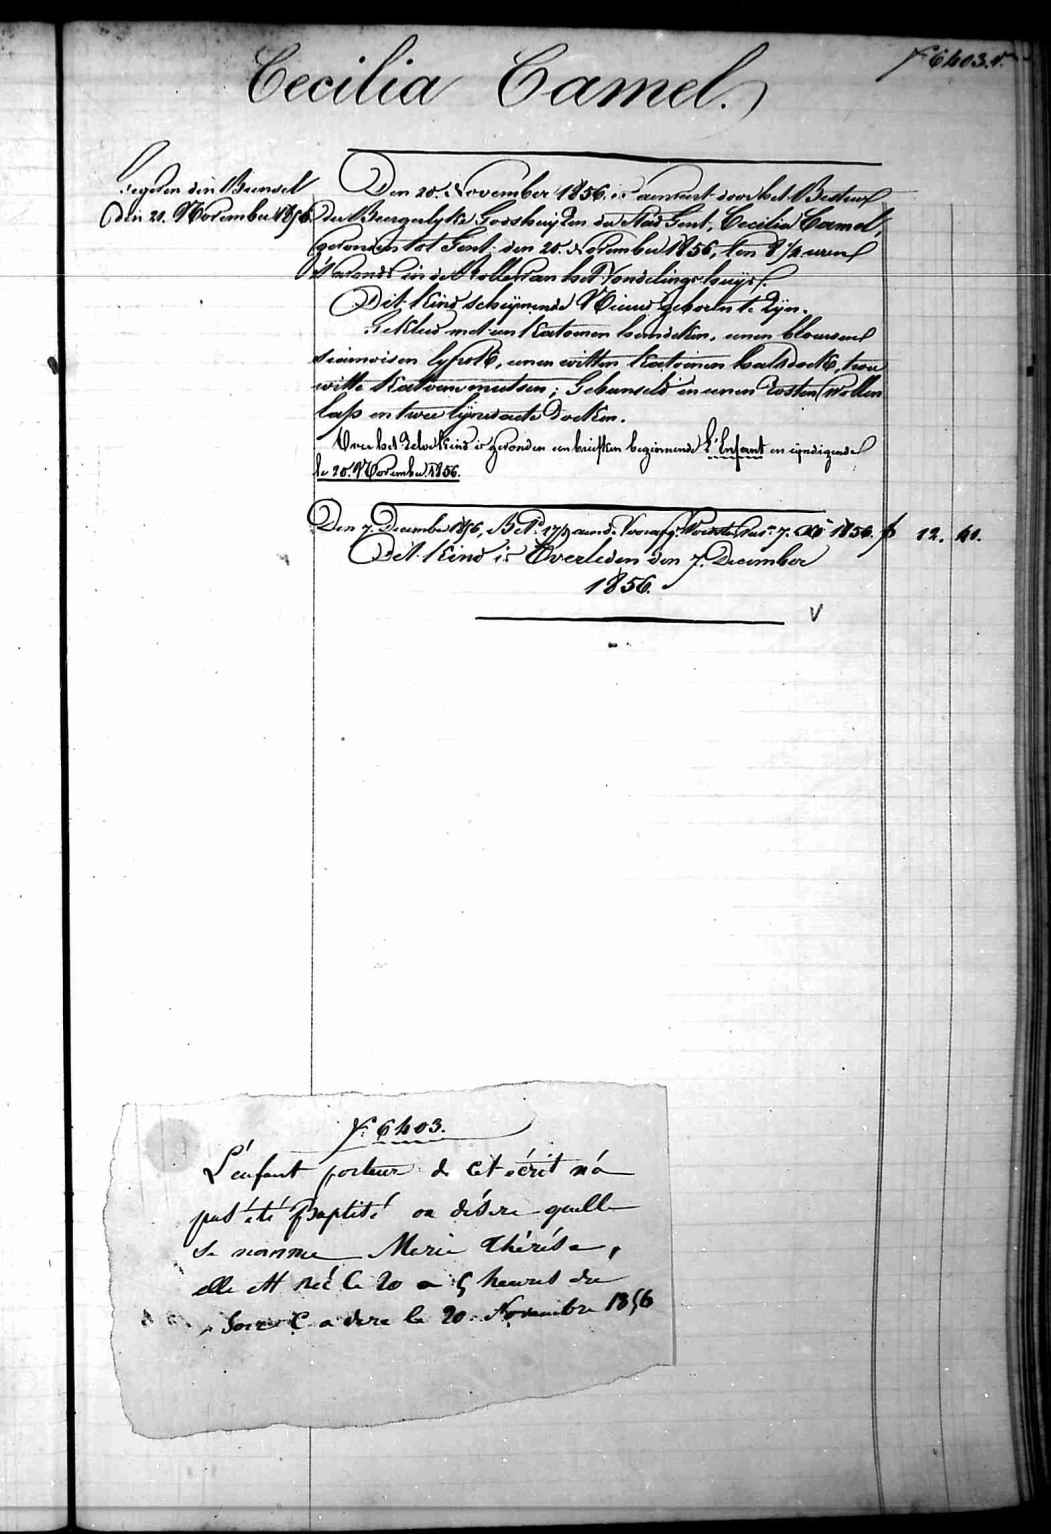 Nº 6403.
Cecilia Camel.
den Bunsel
den 20. November 1856.
Den 20. November 1856. is aenveert door het Bestuer
der Burgerlyke Godshuyzen der Stad Gent, Cecilia Camel,
gevonden tot Gent, den 20. November 1856, ten 8 1/2 uren
'S avonds in de Rolle van het Vondelingshuys.
Dit Kind schynende Nieuw geboren te Zyn.
Gekleed met een Katoenen hemdeken, eenen blauwen
siamoisen lyfrok, eenen witten Katoenen halsdoek, twee
witte Katoene mutsen; Gebunseld in eenen Rosten Wollen
lap en twee lynwaete Doeken.
Over het Zelve Kind is gevonden een briefken beginnende L'Enfant en eyndigende
le 20. Novembre 1856.
Den 7. December 1856, 7. 1856. 12. 41.
Dit Kind is Overleden den 7. December
1856.
V
Nº 6403.
L'enfant porteur de cet écrit n'a
pas été Baptisé on désire quelle
se nomme Marie Thérèse,
elle est née le 20 a 5 heures du
Soir le 20 Novembre 1856